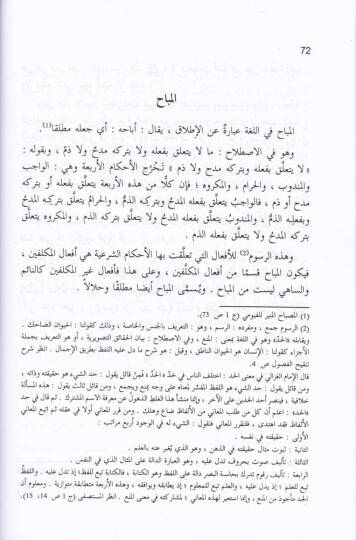 72
المباح
المباح في اللغة عبارةٌ عن الإطلاق ، يقال : أباحه : أي جعله مطلقا(1).
وهو في الاصطلاح : ما لا يتعلق بفعله ولا بتركه مدحٌ ولا ذمّ ، وبقوله :
« لا يتعلَّق بفعله وبتركه مدح ولا ذم » تَخْرُج الأحكام الأربعة وهي : الواجب
والمندوب ، والحرام ، والمكروه ؛ فإن كلًّا من هذه الأربعة يتعلَّق بفعله أو بتركه
مدح أو ذم ، فالواجبُ يتعلَّق بفعله المدح وبتركِه الذمُّ ، والحرامُ يتعلَّق بتركِه المدحُ
وبفعلِه الذمُّ ، والمندوبُ يتعلَّق بفعله المدحُ ولا يتعلَّق بتركه الذم ، والمكروه يتعلَّق
بتركه المدحُ ولا يتعلَّق بفعله الذم .
وهذه الرسوم(2) للأفعال التي تعلَّقت بها الأحكام الشرعية هي أفعال المكلفين ،
فيكون المباح قسمًا من أفعال المكلَّفين ، وعلى هذا فأفعال غير المكلفين كالنائم
والساهي ليست من المباح . ويُسمَّى المباح أيضا مطلقًا وحلالاً .
(1) المصباح المنير للفيومي (ج 1 ص 73).
(2) الرسوم جمع ، ومفرده : الرسم ، وهو : التعريف بالجنس والخاصة ، وذلك كقولنا : الحيوان الضاحك .
ويقابله «الحدّ» وهو في اللغة بمعنى : المنع ، وفي الاصطلاح : بيان الحقائق التصورية ، أو هو التعريف بجملة
الأجزاء كقولنا : الإنسان هو الحيوان الناطق ، وقيل : هو شرح ما دل عليه اللفظ بطريق الإجمال . انظر شرح
تنقيح الفصول ص 4.
قال الإمام الغزالي في معنى الحد : اختلف الناس في حَدِّ « الحدِّ » فَمِنْ قائل يقول : حد الشيء هو حقيقته وذاته ،
ومن قائل يقول : حد الشيء هو اللفظ المفسّر لمعناه على وجه يمنع ويجمع ، ومن قائل ثالث يقول : هذه المسألة
خلافية ، فينصر أحد الحدين على الآخر ، وإنما منشأ هذا الغلط الذهول عن معرفة الاسم المشترك . ثم قال في حد
«الحد» : اعلم أن كل من طلب المعاني من الألفاظ ضاع وهلك . ومن قرر المعاني أولا في عقله ثم اتبع المعاني
الألفاظ فقد اهتدى ، فلنقرر المعاني فنقول : الشيء له في الوجود أربع مراتب :
الأولى : حقيقته في نفسه .
الثانية : ثبوت مثال حقيقته في الذهن ، وهو الذي يُعَبر عنه بالعلم .
الثالثة : تأليف صوت بحروف تدل عليه ، وهو العبارة الدالة على المثال الذي في النفس .
الرابعة : تأليف رقوم تدرك بحاسة البصر دالة على اللفظ وهو الكتابة ، فالكتابة تبع للفظ؛ إذ تدل عليه ، واللفظُ
تبع للعلم ؛ إذ يدل عليه ، والعلم تبع للمعلوم ؛ إذ يطابقه ويوافقه ، وهذه الأربعة متطابقة متوازية . ومعلوم أن
الحد مأخوذ من المنع ، وإنما استعير لهذه المعاني ؛ لمشاركته في معنى المنع . انظر المستصفى (ج 1 ص 14، 15).